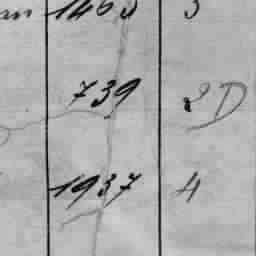 1463 3
739 2D
1937 4